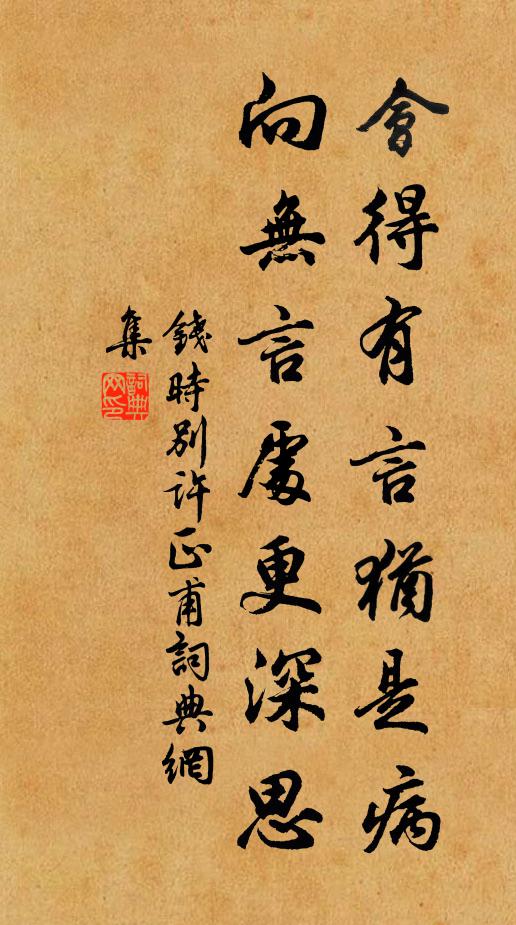 會得有言猶是病
向無言處更深思
錢時別許正甫詞典網
集
詞典
网印